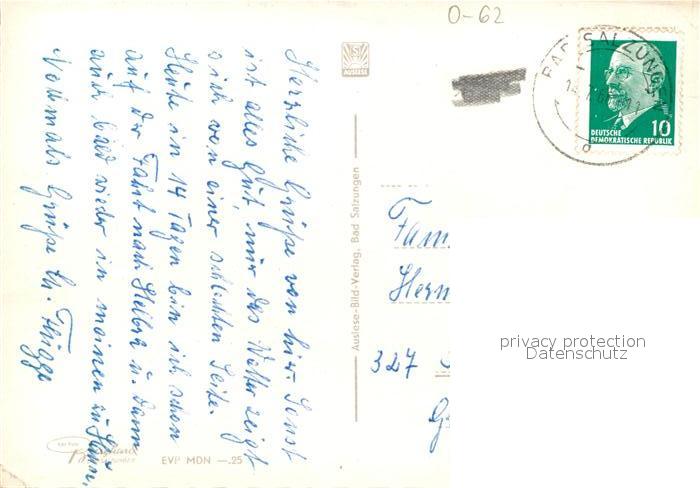 Herzliche Grüße von hier. Sonst
ist alles gut, nur das Wetter zeigt
sich von einer schlechten Seite.
Heute in 14 Tagen bin ich schon
auf der Fahrt nach u. dann
auch bald wieder in meinen zu Hause.
Nochmals Grüße
AUSLESE
Auslese-Bild-Verlag, Bad Salzungen
EVP MDN —.25
0-62
BAD SALZUNGEN
DEUTSCHE
DEMOKRATISCHE REPUBLIK
10
Fam
Herm
327
privacy protection
Datenschutz